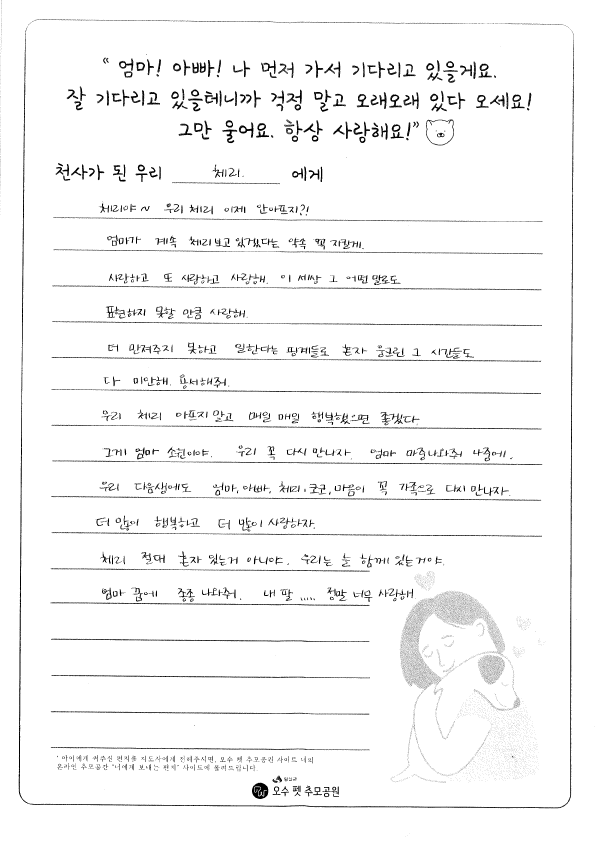 “ 엄마! 아빠! 나 먼저 가서 기다리고 있을게요.
잘 기다리고 있을테니까 걱정 말고 오래오래 있다 오세요!
그만 울어요. 항상 사랑해요!”
천사가 된 우리 체리. 에게
체리야~ 우리 체리 이제 안아프지?!
엄마가 계속 체리보고 있겠다는 약속 꼭 지킬게.
사랑하고 또 사랑하고 사랑해. 이 세상 그 어떤 말로도
표현하지 못할 만큼 사랑해.
더 만져주지 못하고 일한다는 핑계들로 혼자 웅크린 그 시간들도
다 미안해. 용서해줘.
우리 체리 아프지말고 매일 매일 행복했으면 좋겠다
그게 엄마 소원이야. 우리 꼭 다시 만나자. 엄마 마중나와줘 나중에.
우리 다음생에도 엄마, 아빠, 체리, 코코, 마음이 꼭 가족으로 다시 만나자.
더 많이 행복하고 더 많이 사랑하자.
체리 절대 혼자 있는거 아니야. 우리는 늘 함께 있는거야.
엄마 꿈에 종종 나와줘. 내 딸 ..... 정말 너무 사랑해
* 아이에게 써주신 편지를 지도사에게 전해주시면, 오수 펫 추모공원 사이트 내의
온라인 추모공간 "너에게 보내는 편지" 사이트에 올려드립니다.
임실군
오수 펫 추모공원